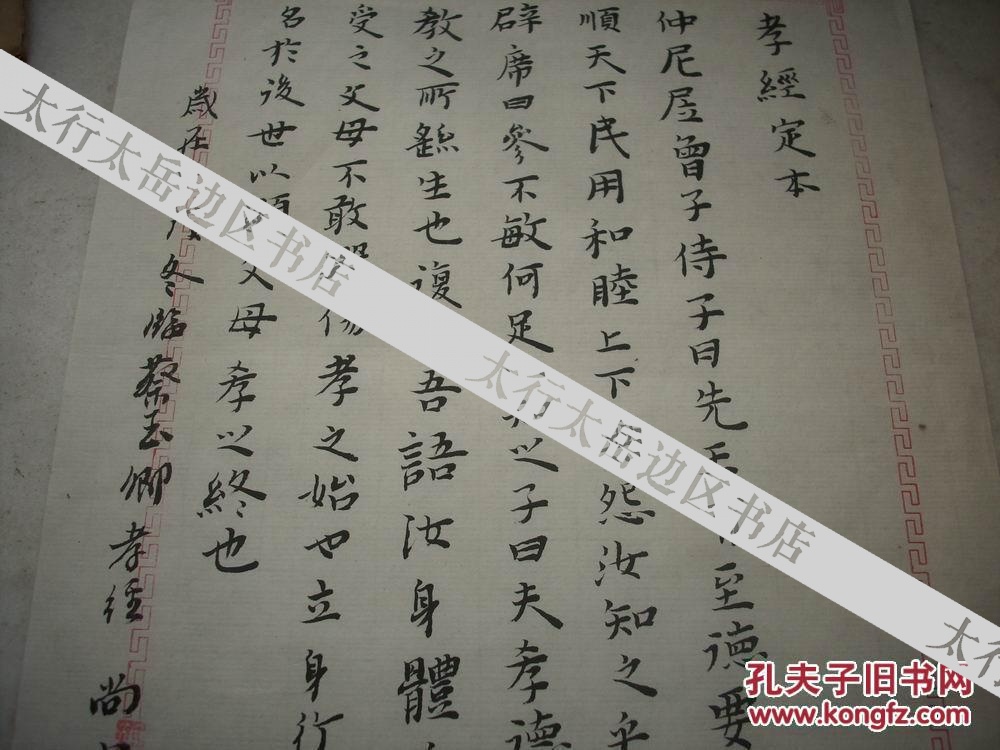 孝經定本
仲尼凥曾子侍子曰先王有至德要
順天下民用和睦上下無怨汝知之乎
辟席曰參不敏何足以知之子曰夫孝德
教之所繇生也復吾語汝身體
受之父母不敢毀傷孝之始也立身行
名於後世以顯父母孝之終也
歲在冬臨蔡玉卿孝經 尚
太行太岳边区书店
太行太岳边区书店
太行太
孔夫子旧书网
www.kongfz.com